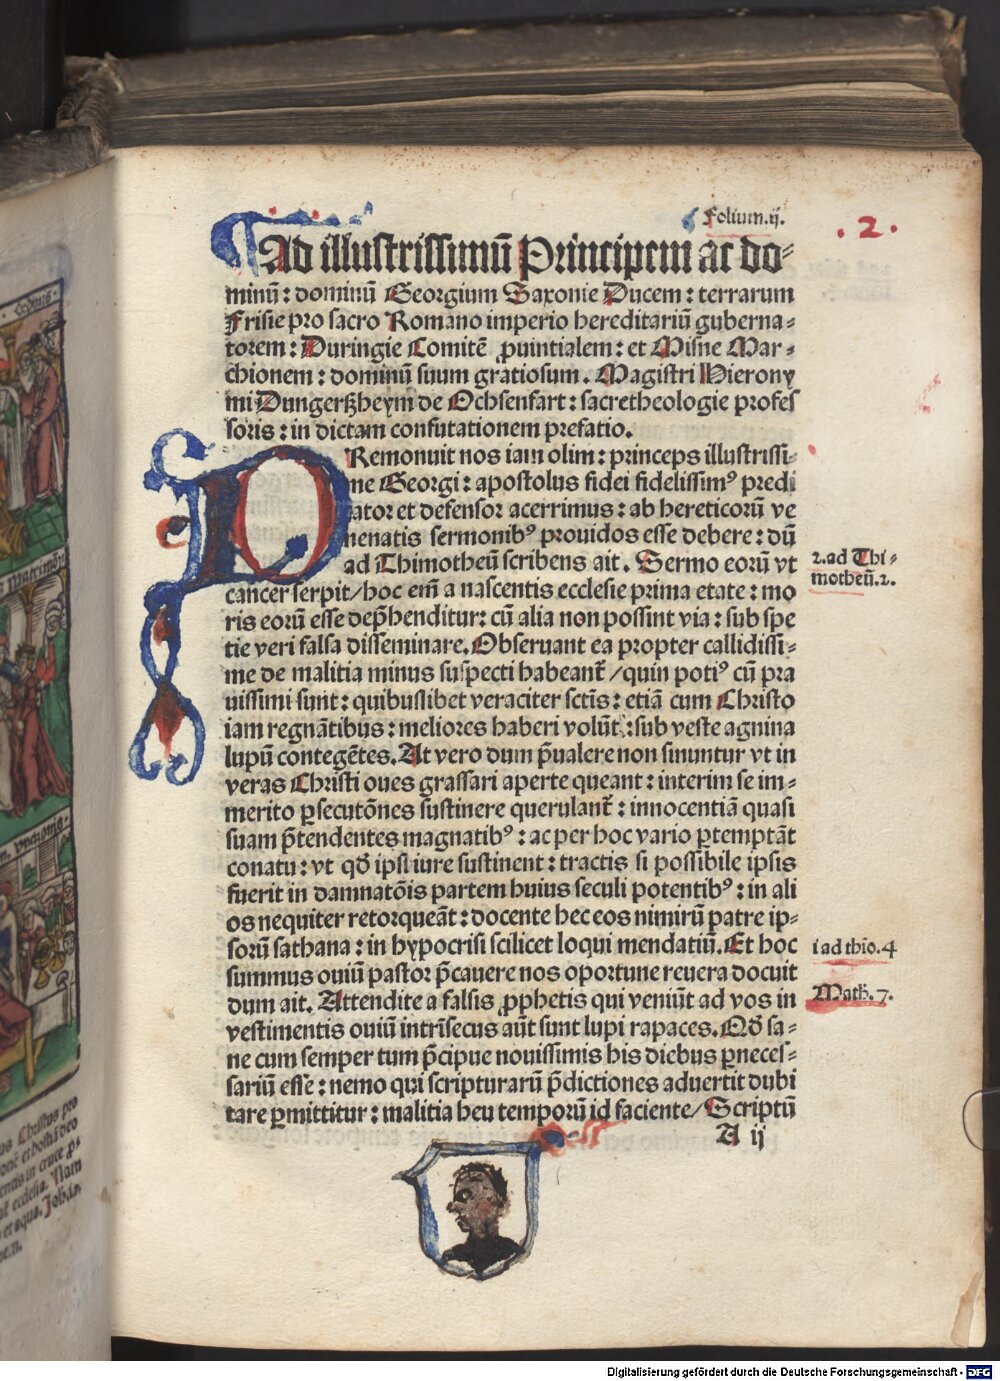 Folium.ij.
.2.
Ad illustrissimū Principem ac do⸗
minū: dominū Georgium Saxonie Ducem: terrarum
Frisie pro sacro Romano imperio hereditariū guberna⸗
torem: Duringie Comitē ꝓuintialem: et Misne Mar⸗
chionem: dominū suum gratiosum. Magistri Hierony
mi Dungerßheym de Ochsenfart: sacretheologie profes
soris: in dictam confutationem prefatio.
PRemonuit nos iam olim: princeps illustrissi⸗
me Georgi: apostolus fidei fidelissimꝰ predi
cator et defensor acerrimus: ab hereticorū ve
nenatis sermonibꝰ prouidos esse debere: dū
ad Thimotheū scribens ait. Sermo eorū vt
cancer serpit/hoc em̄ a nascentis ecclesie prima etate: mo
ris eorū esse dep̄henditur: cū alia non possint via: sub spe
tie veri falsa disseminare. Obseruant ea propter callidissi⸗
me de malitia minus suspecti habeant᷑/quin potiꝰ cū pra
uissimi sunt: quibuslibet veraciter sct̄is: etiā cum Christo
iam regnātibus: meliores haberi volūt: sub veste agnina
lupū contegētes. At vero dum p̄ualere non sinuntur vt in
veras Christi oues grassari aperte queant: interim se im⸗
merito ꝑsecutōnes sustinere querulant᷑: innocentiā quasi
suam p̄tendentes magnatibꝰ: ac per hoc vario ꝑtemptāt
conatu: vt qd̄ ipsi iure sustinent: tractis si possibile ipsis
fuerit in damnatōis partem huius seculi potentibꝰ: in ali
os nequiter retorqueāt: docente hec eos nimirū patre ip⸗
sorū sathana: in hypocrisi scilicet loqui mendatiū. Et hoc
summus ouiū pastor p̄cauere nos oportune reuera docuit
dum ait. Attendite a falsis ꝓphetis qui veniūt ad vos in
vestimentis ouiū intrīsecus aūt sunt lupi rapaces. Qd̄ sa⸗
ne cum semper tum p̄cipue nouissimis his diebus ꝑneces⸗
sariū esse: nemo qui scripturarū p̄dictiones aduertit dubi
tare ꝑmittitur: malitia heu temporū id faciente/Scriptū
A ij
2.ad Thi⸗
motheū.2.
i ad thio.4
Math.7.
Christus pro
et hostiā deo
in cruce
ecclesia. Nam
et aqua.
Digitalisierung gefördert durch die Deutsche Forschungsgemeinschaft - DFG